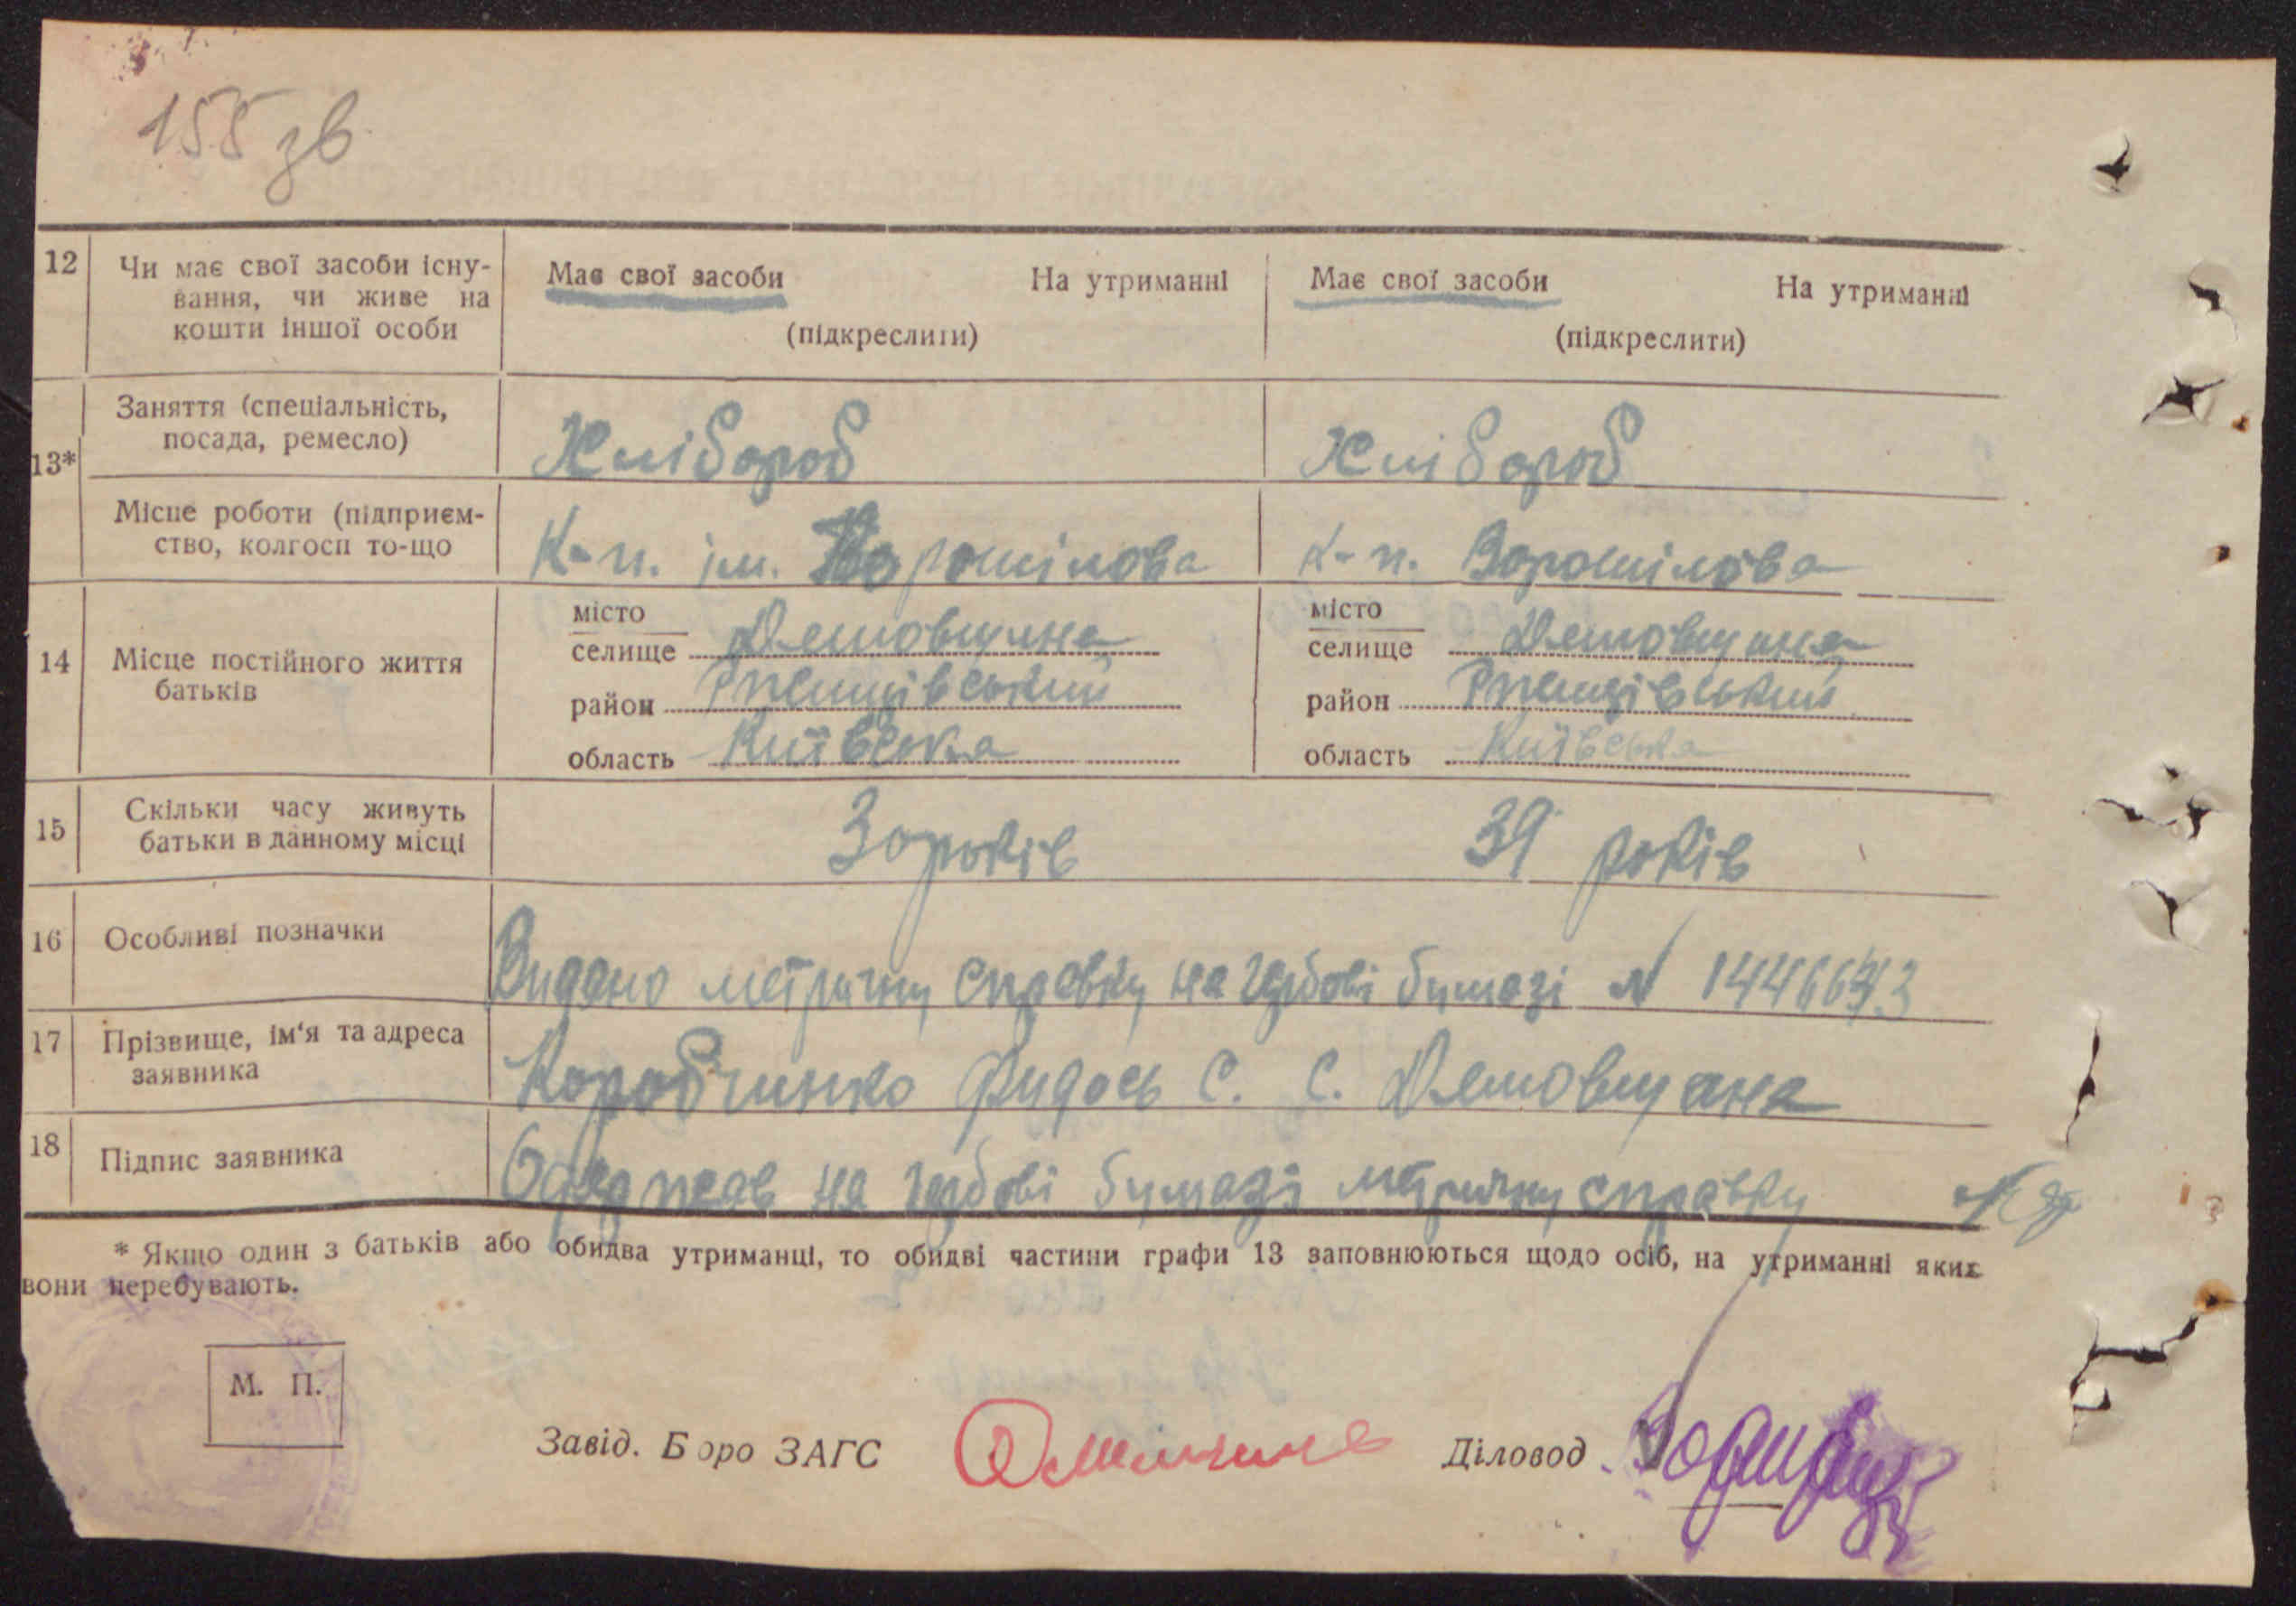 155 зв
12 Чи має свої засоби існу-
вання, чи живе на
кошти іншої особи
Має свої засоби На утриманні
(підкреслити)
Має свої засоби На утриманні
(підкреслити)
13*
Заняття (спеціальність,
посада, ремесло)
Хлібороб
Хлібороб
Місце роботи (підприєм-
ство, колгосп то-що
К-п. ім. Ворошілова
к-п. Ворошілова
14 Місце постійного життя
батьків
місто
селище Демовщина
район Ржищівський
область Київська
місто
селище Демовщина
район Ржищівський
область Київська
15 Скільки часу живуть
батьки в данному місці
30 років
39 років
16 Особливі позначки
Видано метричну справку на гербові бумазі N
17 Прізвище, ім'я та адреса
заявника
Коробчинко Фидось С. С. Демовщина
18 Підпис заявника
Одержав на гербові бумазі метричну справку
* Якщо один з батьків або обидва утриманці, то обидві частини графи 13 заповнюються щодо осіб, на утриманні яких
вони перебувають.
М. П.
Завід. Бюро ЗАГС
Діловод